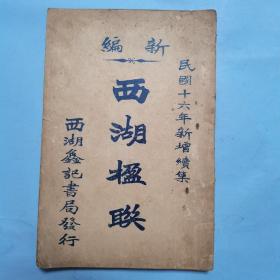 新編
民國十六年新增續集
西湖楹聯
西湖鑫記書局發行